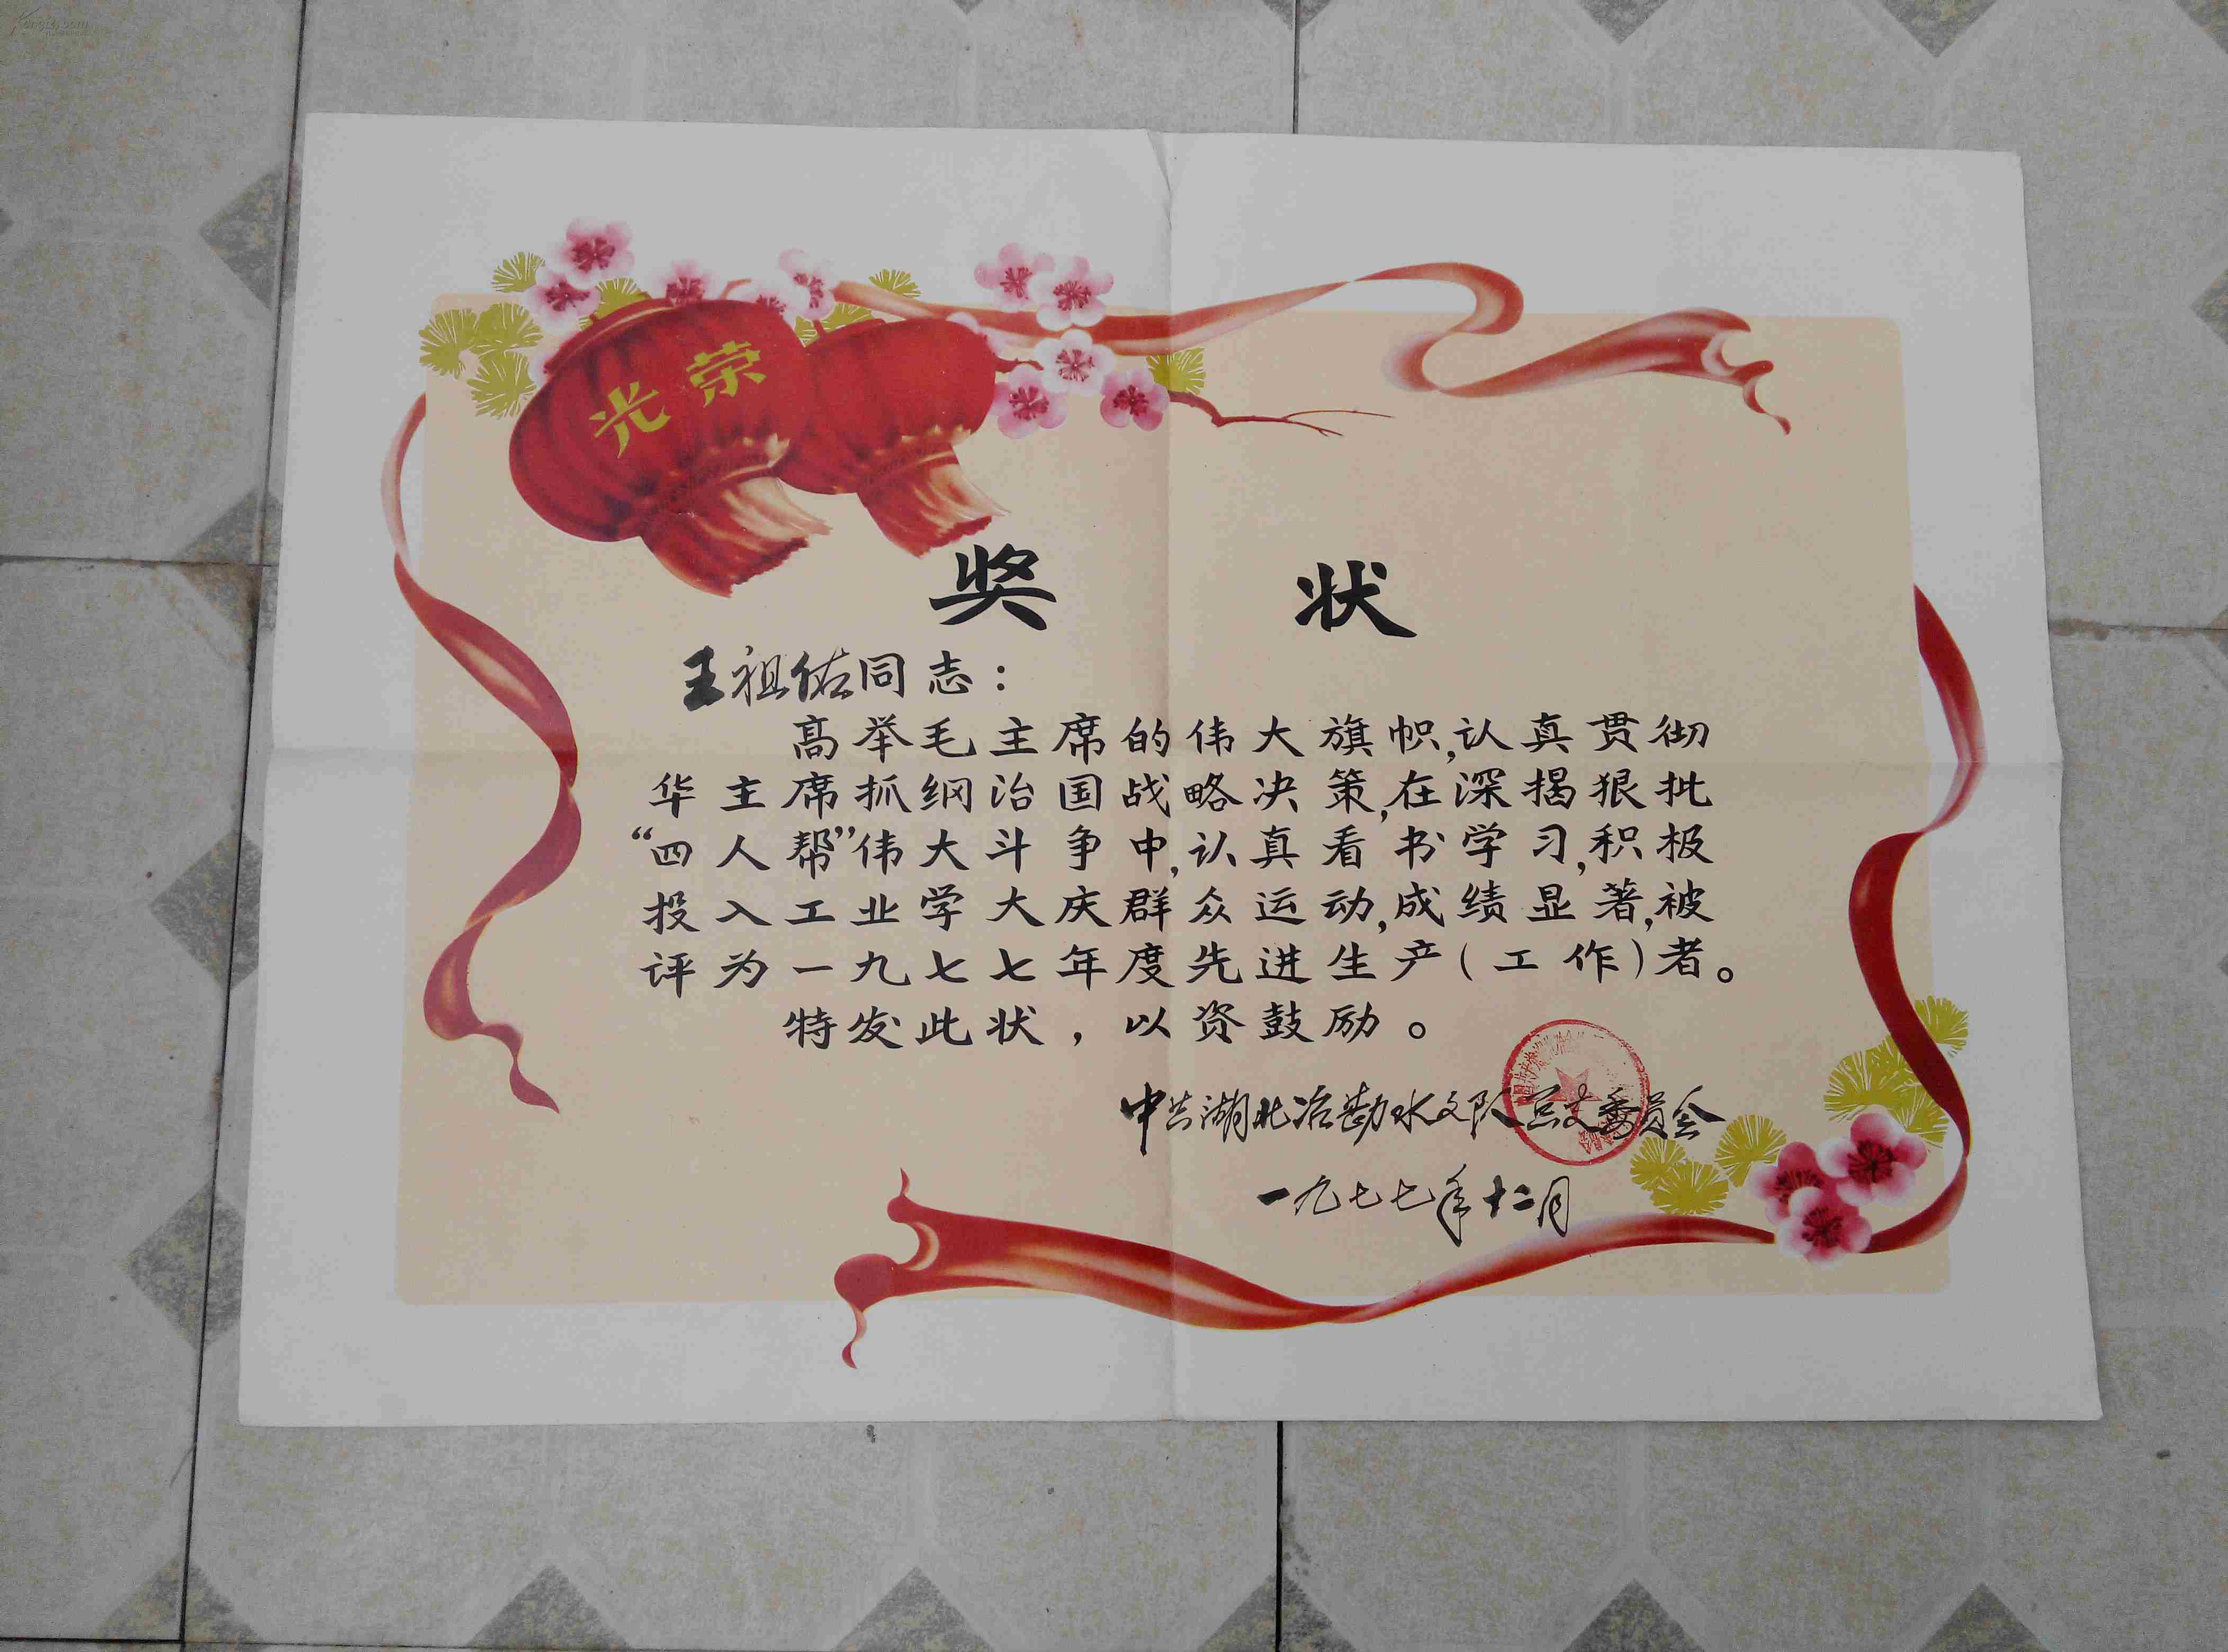 光荣
奖状
王祖佑同志：
高举毛主席的伟大旗帜,认真贯彻
华主席抓纲治国战略决策,在深揭狠批
“四人帮”伟大斗争中,认真看书学习,积极
投入工业学大庆群众运动,成绩显著,被
评为一九七七年度先进生产(工作)者。
特发此状，以资鼓励。
中共湖北冶勘水文队总支委员会
一九七七年十二月